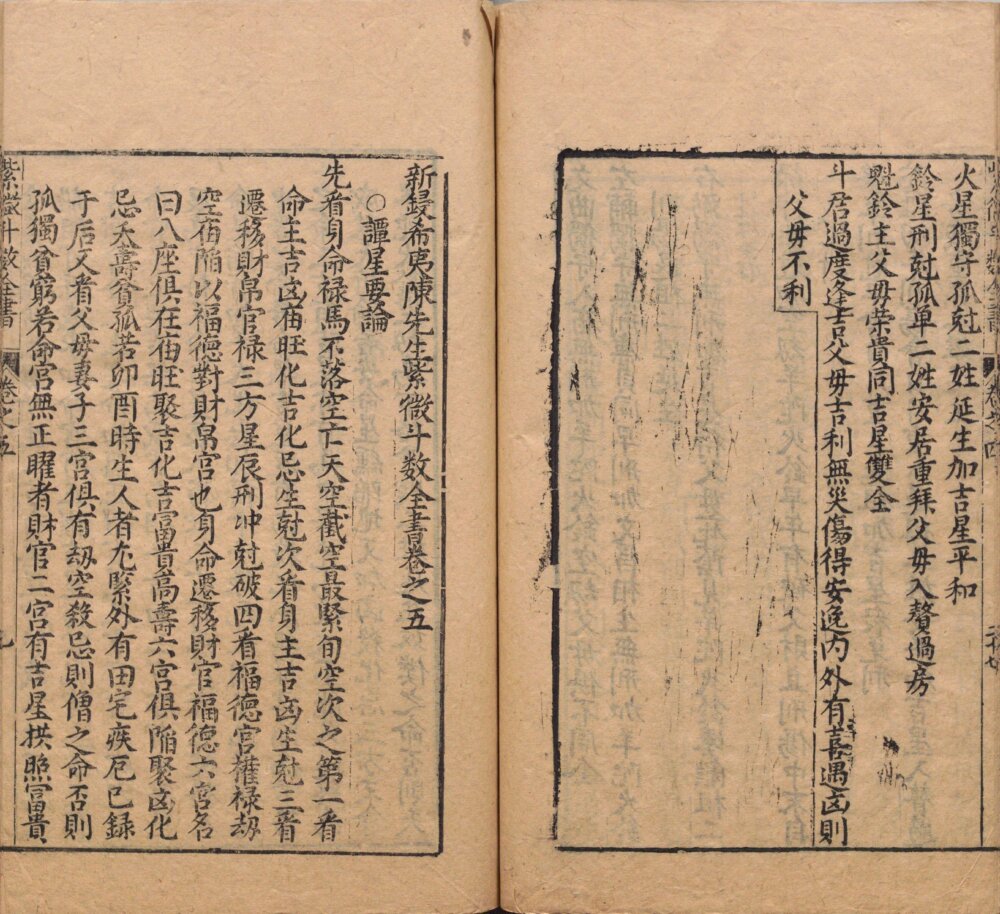 火星獨守孤尅二姓延生加吉星平和
鈴星刑尅孤單二姓安居重拜父毋入贅過房
魁鈴主父毋榮貴同吉星雙全
斗君過度逢吉父毋吉利無災傷得安逸内外有喜遇凶則
父毋不利
新鋟希夷陳先生紫微斗数全書卷之五
○譚星要論
先看身命祿馬不落空亡天空截空最緊旬空次之第一看
命主吉凶庙旺化吉化忌生尅次看身主吉凶生尅三看
遷移財帛官禄三方星辰刑冲尅破四看福德宮權禄劫
空庙陥以福德對財帛宮也身命遷移財官福德六宮名
曰八座俱在庙旺聚吉化吉富貴高壽六宮俱陥聚凶化
忌夭壽貧孤若卯酉時生人者尤緊外有田宅疾厄已録
于后又看父毋妻子三宮俱有劫空殺忌則僧之命否則
孤獨貧窮若命宮無正曜者財官二宮有吉星拱照富貴
紫微斗数全書 卷之五